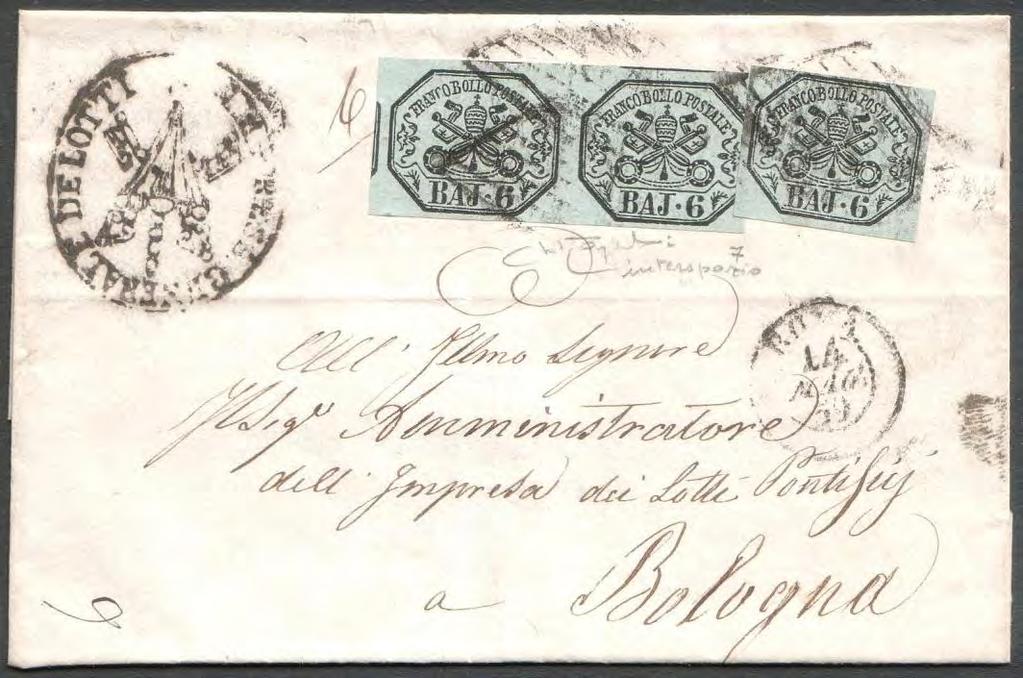 DE LOTTI
6
FRANCO BOLLO POSTALE
BAJ·6
FRANCO BOLLO POSTALE
BAJ·6
FRANCO BOLLO POSTALE
BAJ·6
7
interspazio
ROMA
14
MAG
55
All' Illmo Signore
Il Sigr Amministratore
dell' Impresa dei Lotti Pontifij
a Bologna